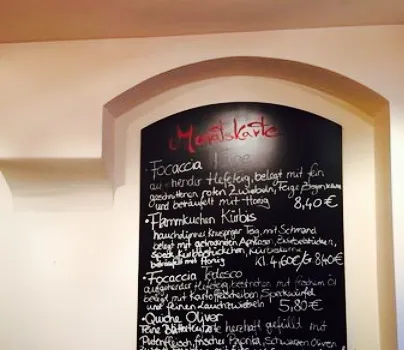 Monatskarte
• Focaccia Feige
aufgehender Hefeteig, belegt mit fein
geschnittenen roten Zwiebeln, Feige, Ziegen
und beträufelt mit Honig 8,40€
• Flammkuchen Kürbis
hauchdünner knuspriger Teig, mit Schmand
belegt mit getrockneten Aprikosen, Zwiebelstücken,
Speck, Kürbisstückchen, Kürbiskerne
beträufelt mit Honig Kl. 4,60€/G 8,40€
• Focaccia Tedesco
aufgehender Hefeteig bestrichen mit frischem Öl
belegt mit Kartoffelscheiben, Speckwürfel
und feinen Lauchzwiebeln 5,80€
• Quiche Oliver
Feine herzhaft gefüllt mit
Putenfleisch, frischer Paprika, Schwarzen Oliven